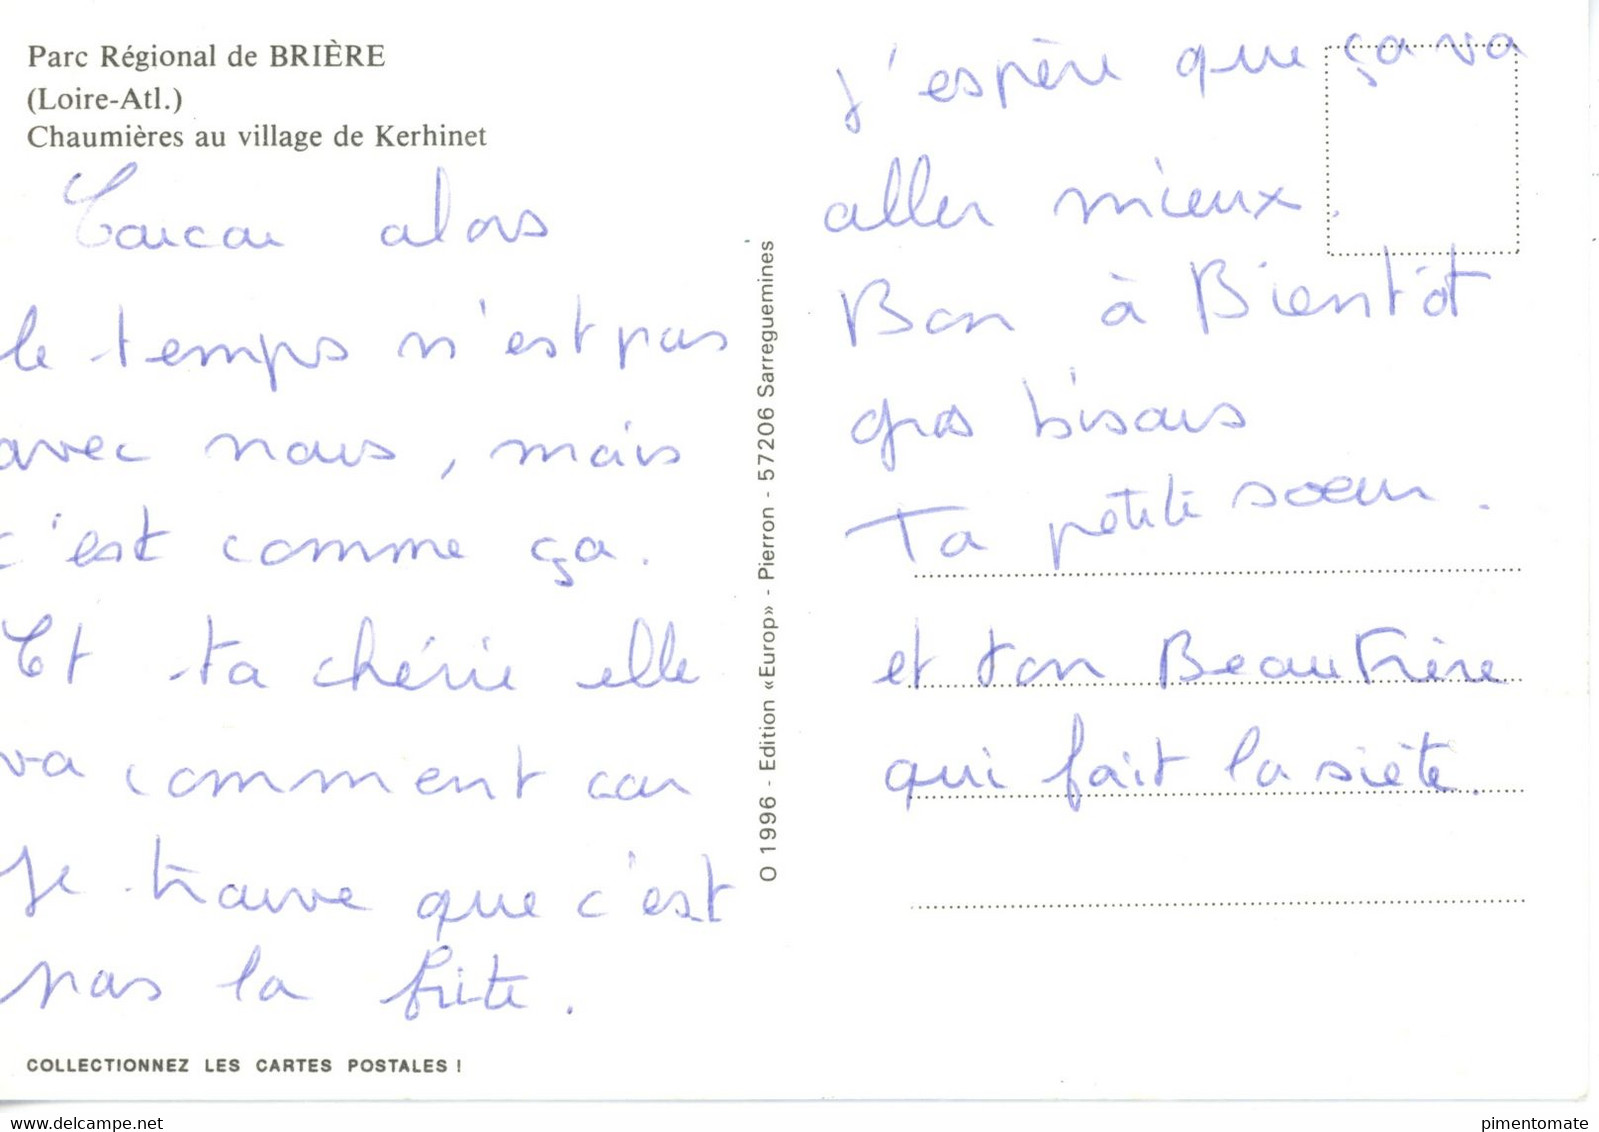 Parc Régional de BRIÈRE
(Loire-Atl.)
Chaumières au village de Kerhinet
Coucou alors
le temps n'est pas
avec nous, mais
c'est comme ça.
Et ta chérie elle
va comment car
je trouve que c'est
pas la frite.
COLLECTIONNEZ LES CARTES POSTALES !
O 1996 - Edition «Europ» - Pierron - 57206 Sarreguemines
J'espère que ça va
aller mieux.
Bon à Bientôt
gros bisous
Ta petite soeur.
et ton Beau Frère
qui fait la siète.
pimentomate